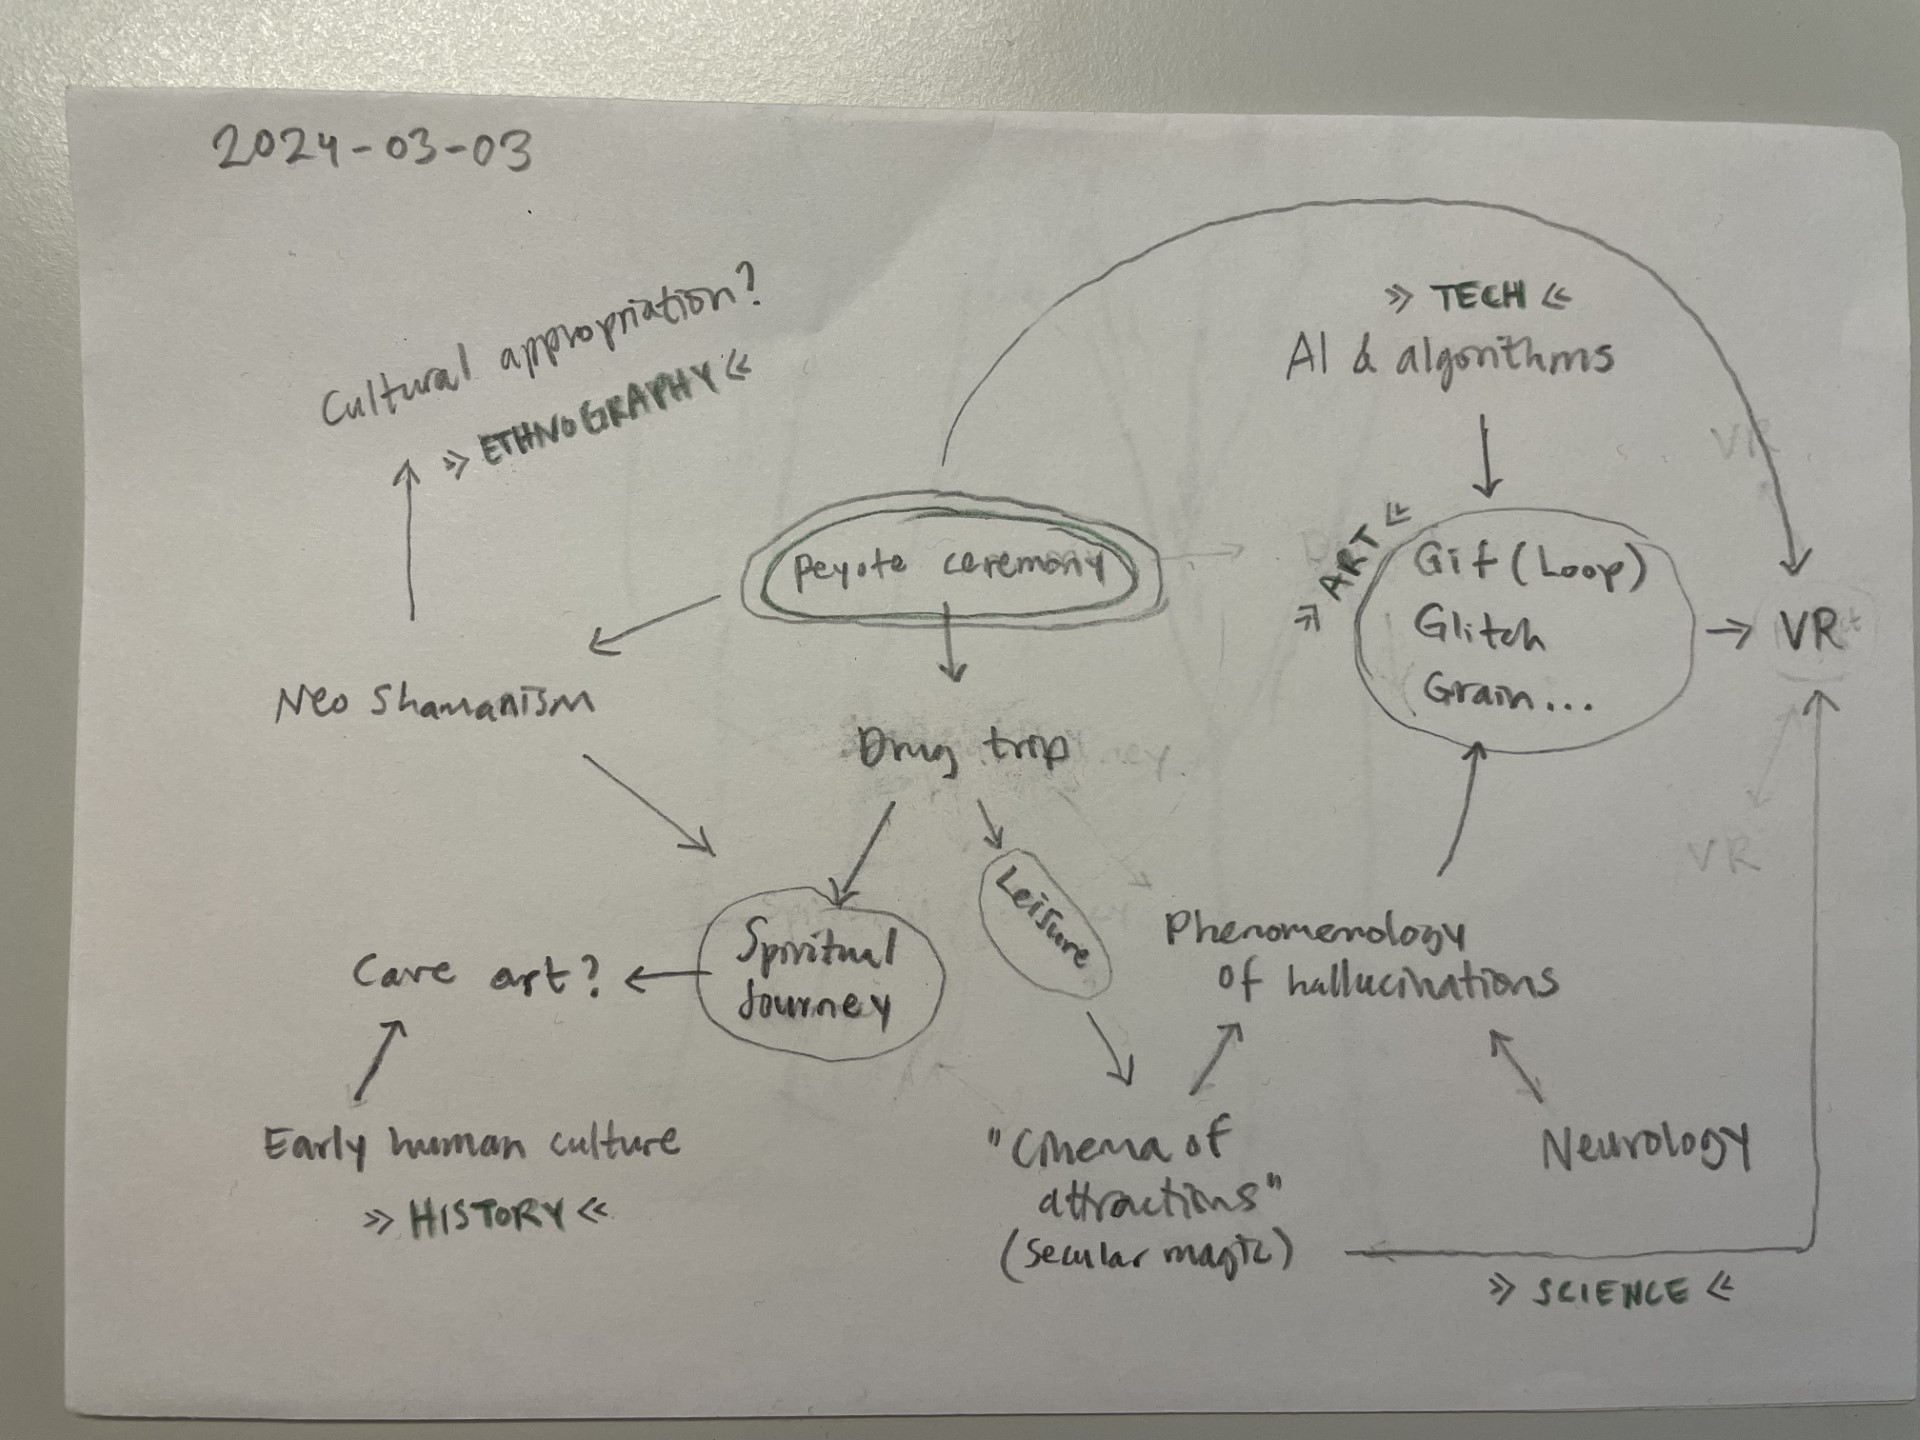 2024-03-03
Cultural appropriation?
» ETHNOGRAPHY «
» TECH «
AI & algorithms
VR
Peyote ceremony
» ART «
Gif (Loop)
Glitch
Grain...
VR
Neo Shamanism
Drug trip
VR
Leisure
Spiritual
Journey
Cave art?
Phenomenology
of hallucinations
Early human culture
» HISTORY «
"Cinema of
attractions"
(secular magic)
Neurology
» SCIENCE «